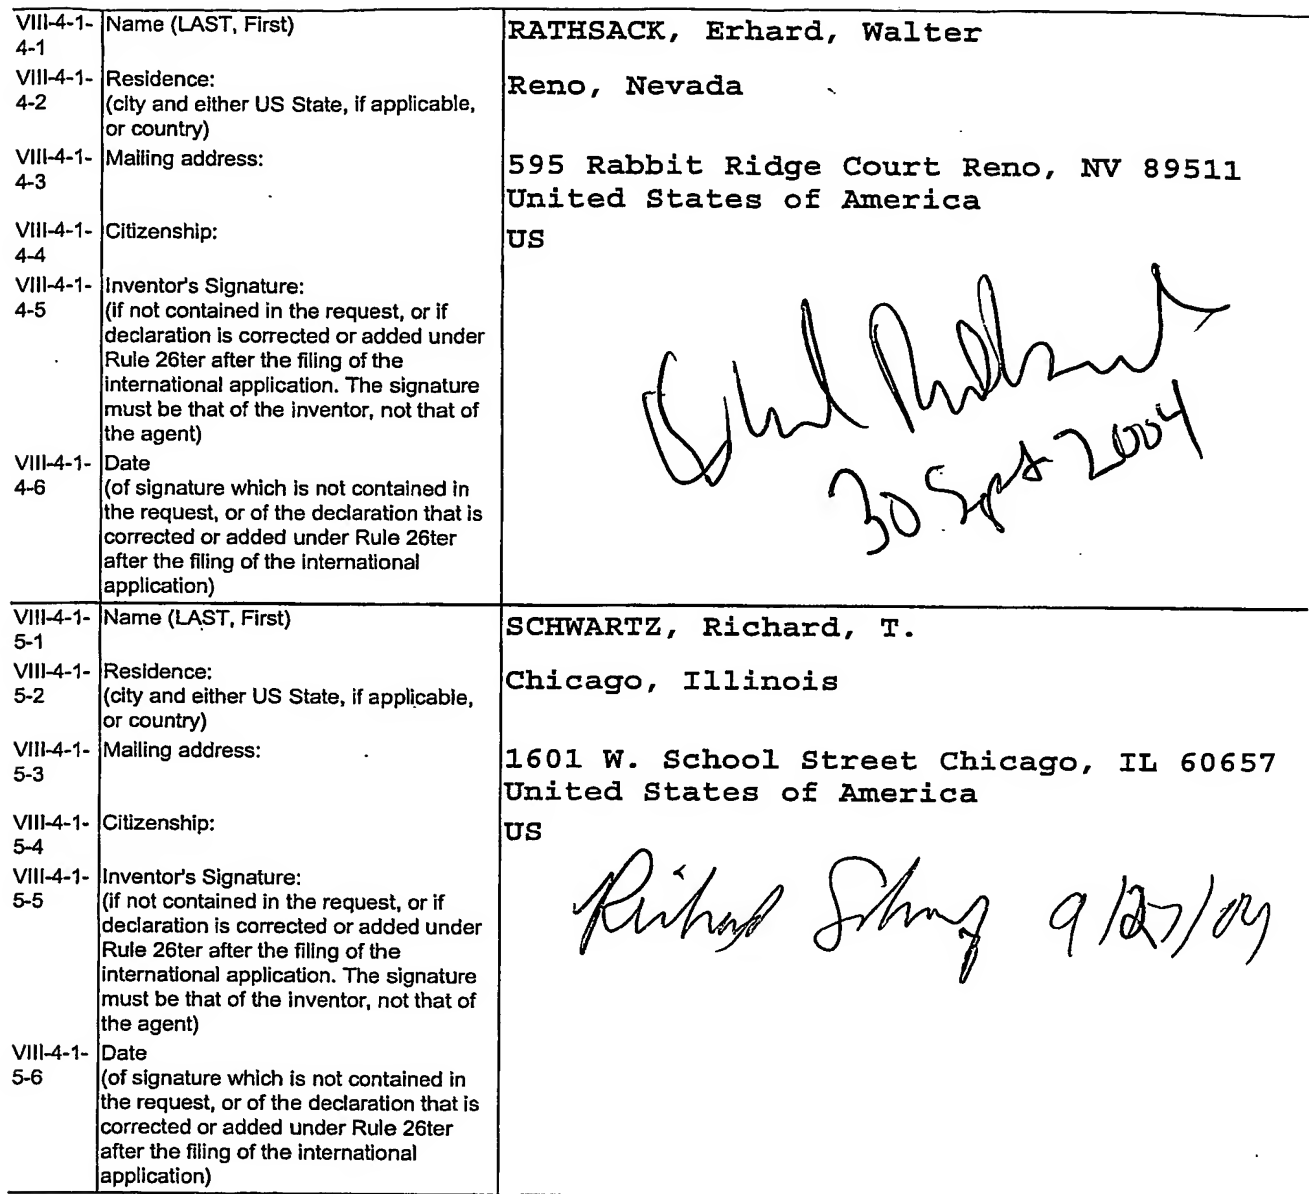 VIII-4-1-4-1 Name (LAST, First) RATHSACK, Erhard, Walter
VIII-4-1-4-2 Residence: Reno, Nevada
(city and either US State, if applicable,
or country)
VIII-4-1-4-3 Mailing address: 595 Rabbit Ridge Court Reno, NV 89511
United States of America
VIII-4-1-4-4 Citizenship: US
VIII-4-1-4-5 Inventor's Signature:
(if not contained in the request, or if
declaration is corrected or added under
Rule 26ter after the filing of the
international application. The signature
must be that of the inventor, not that of
the agent)
30 Sept 2004
VIII-4-1-4-6 Date
(of signature which is not contained in
the request, or of the declaration that is
corrected or added under Rule 26ter
after the filing of the international
application)
VIII-4-1-5-1 Name (LAST, First) SCHWARTZ, Richard, T.
VIII-4-1-5-2 Residence: Chicago, Illinois
(city and either US State, if applicable,
or country)
VIII-4-1-5-3 Mailing address: 1601 W. School Street Chicago, IL 60657
United States of America
VIII-4-1-5-4 Citizenship: US
VIII-4-1-5-5 Inventor's Signature: Richard 9/27/04
(if not contained in the request, or if
declaration is corrected or added under
Rule 26ter after the filing of the
international application. The signature
must be that of the inventor, not that of
the agent)
VIII-4-1-5-6 Date
(of signature which is not contained in
the request, or of the declaration that is
corrected or added under Rule 26ter
after the filing of the international
application)